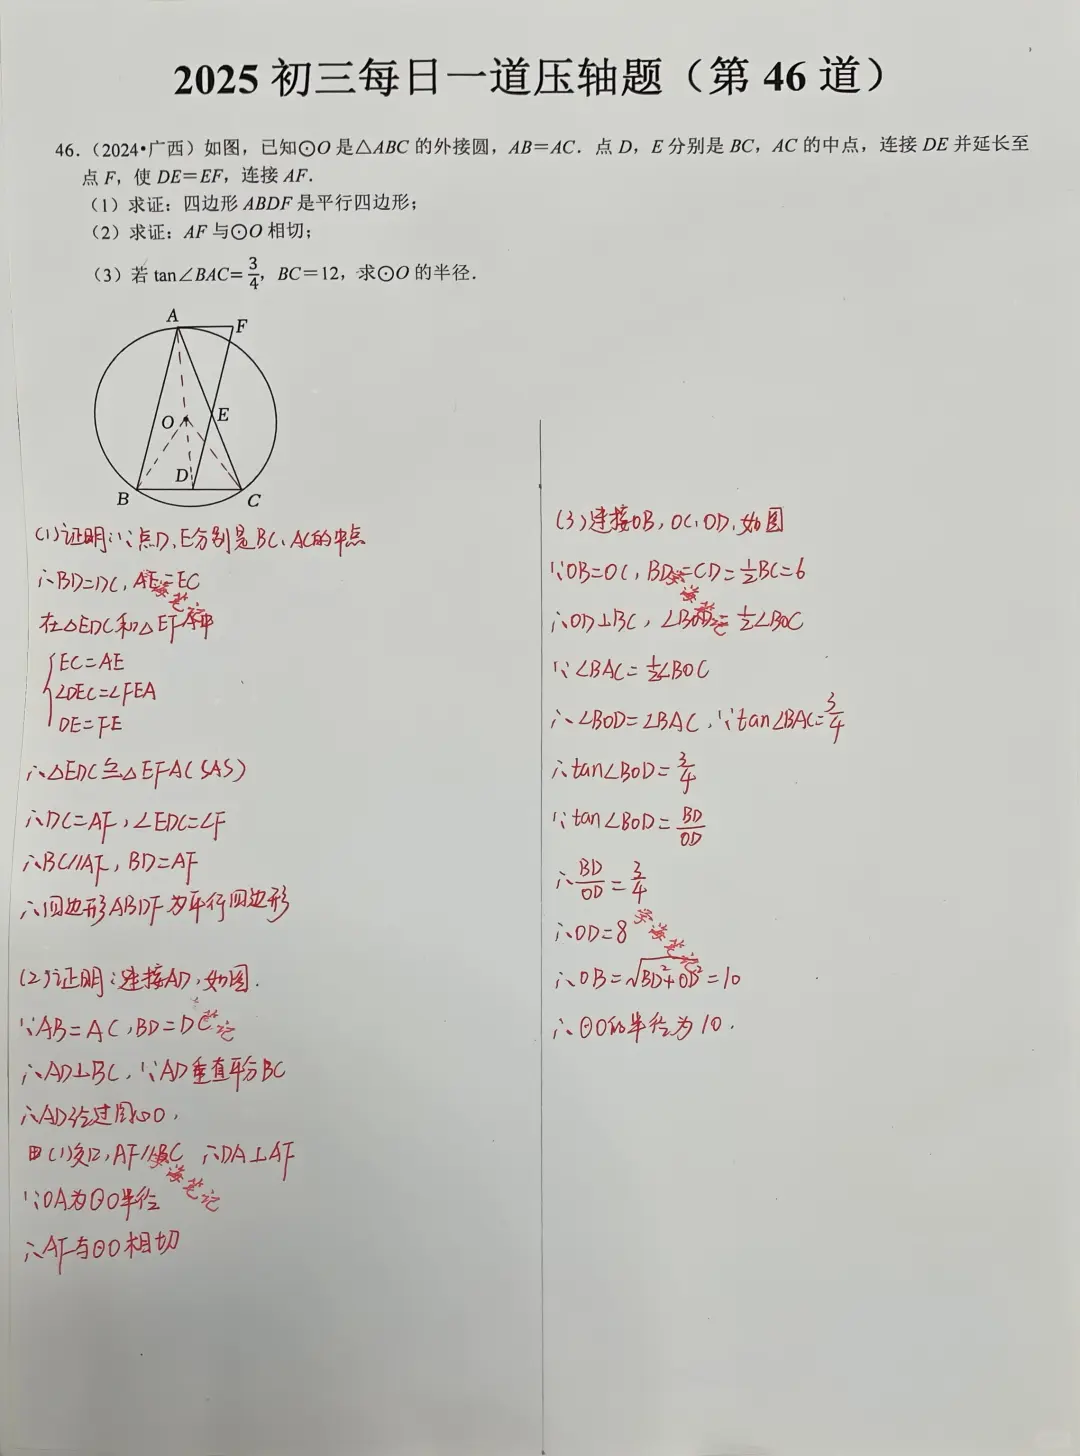 2025 初三每日一道压轴题（第 46 道）
46.（2024•广西）如图，已知⊙O 是△ABC 的外接圆，AB＝AC．点 D，E 分别是 BC，AC 的中点，连接 DE 并延长至
点 F，使 DE＝EF，连接 AF．
（1）求证：四边形 ABDF 是平行四边形；
（2）求证：AF 与⊙O 相切；
（3）若 tan∠BAC=3/4，BC＝12，求⊙O 的半径．
A
F
O
E
D
B
C
(1)证明:∵点D,E分别是BC,AC的中点
∴BD=DC,AE=EC
在△EDC和△EFA中
EC=AE
∠DEC=∠FEA
DE=FE
∴△EDC≌△EFA(SAS)
∴DC=AF,∠EDC=∠F
∴BC//AF,BD=AF
∴四边形ABDF为平行四边形
(2)证明:连接AD,如图.
∵AB=AC,BD=DC
∴AD⊥BC,∵AD垂直平分BC
∴AD经过圆心O,
由(1)知,AF//BC ∴DA⊥AF
∵OA为⊙O半径
∴AF与⊙O相切
(3)连接OB,OC,OD,如图
∵OB=OC,BD=CD=1/2BC=6
∴OD⊥BC,∠BOD=1/2∠BOC
∵∠BAC=1/2∠BOC
∴∠BOD=∠BAC,∵tan∠BAC=3/4
∴tan∠BOD=3/4
∵tan∠BOD=BD/OD
∴BD/OD=3/4
∴OD=8
∴OB=√BD²+OD²=10
∴⊙O的半径为10.
学海笔记